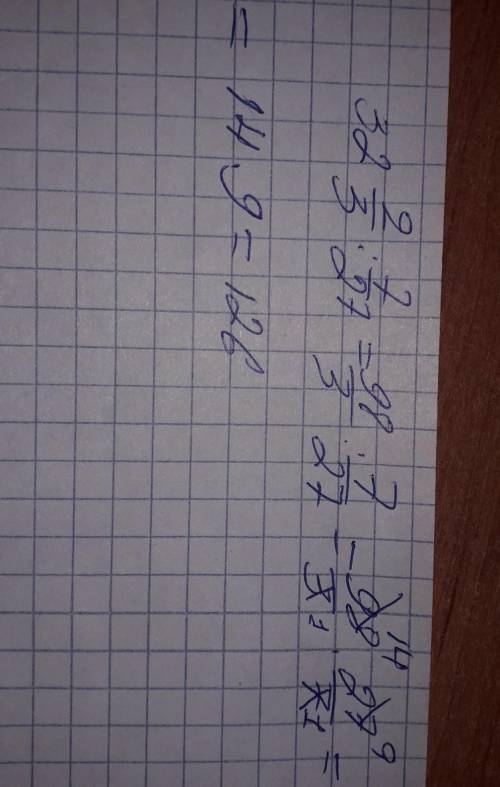 32 2/3 : 7/27 = 98/3 : 7/27 = 98 14/3 1 · 27 9/7 1 =
= 14 · 9 = 126